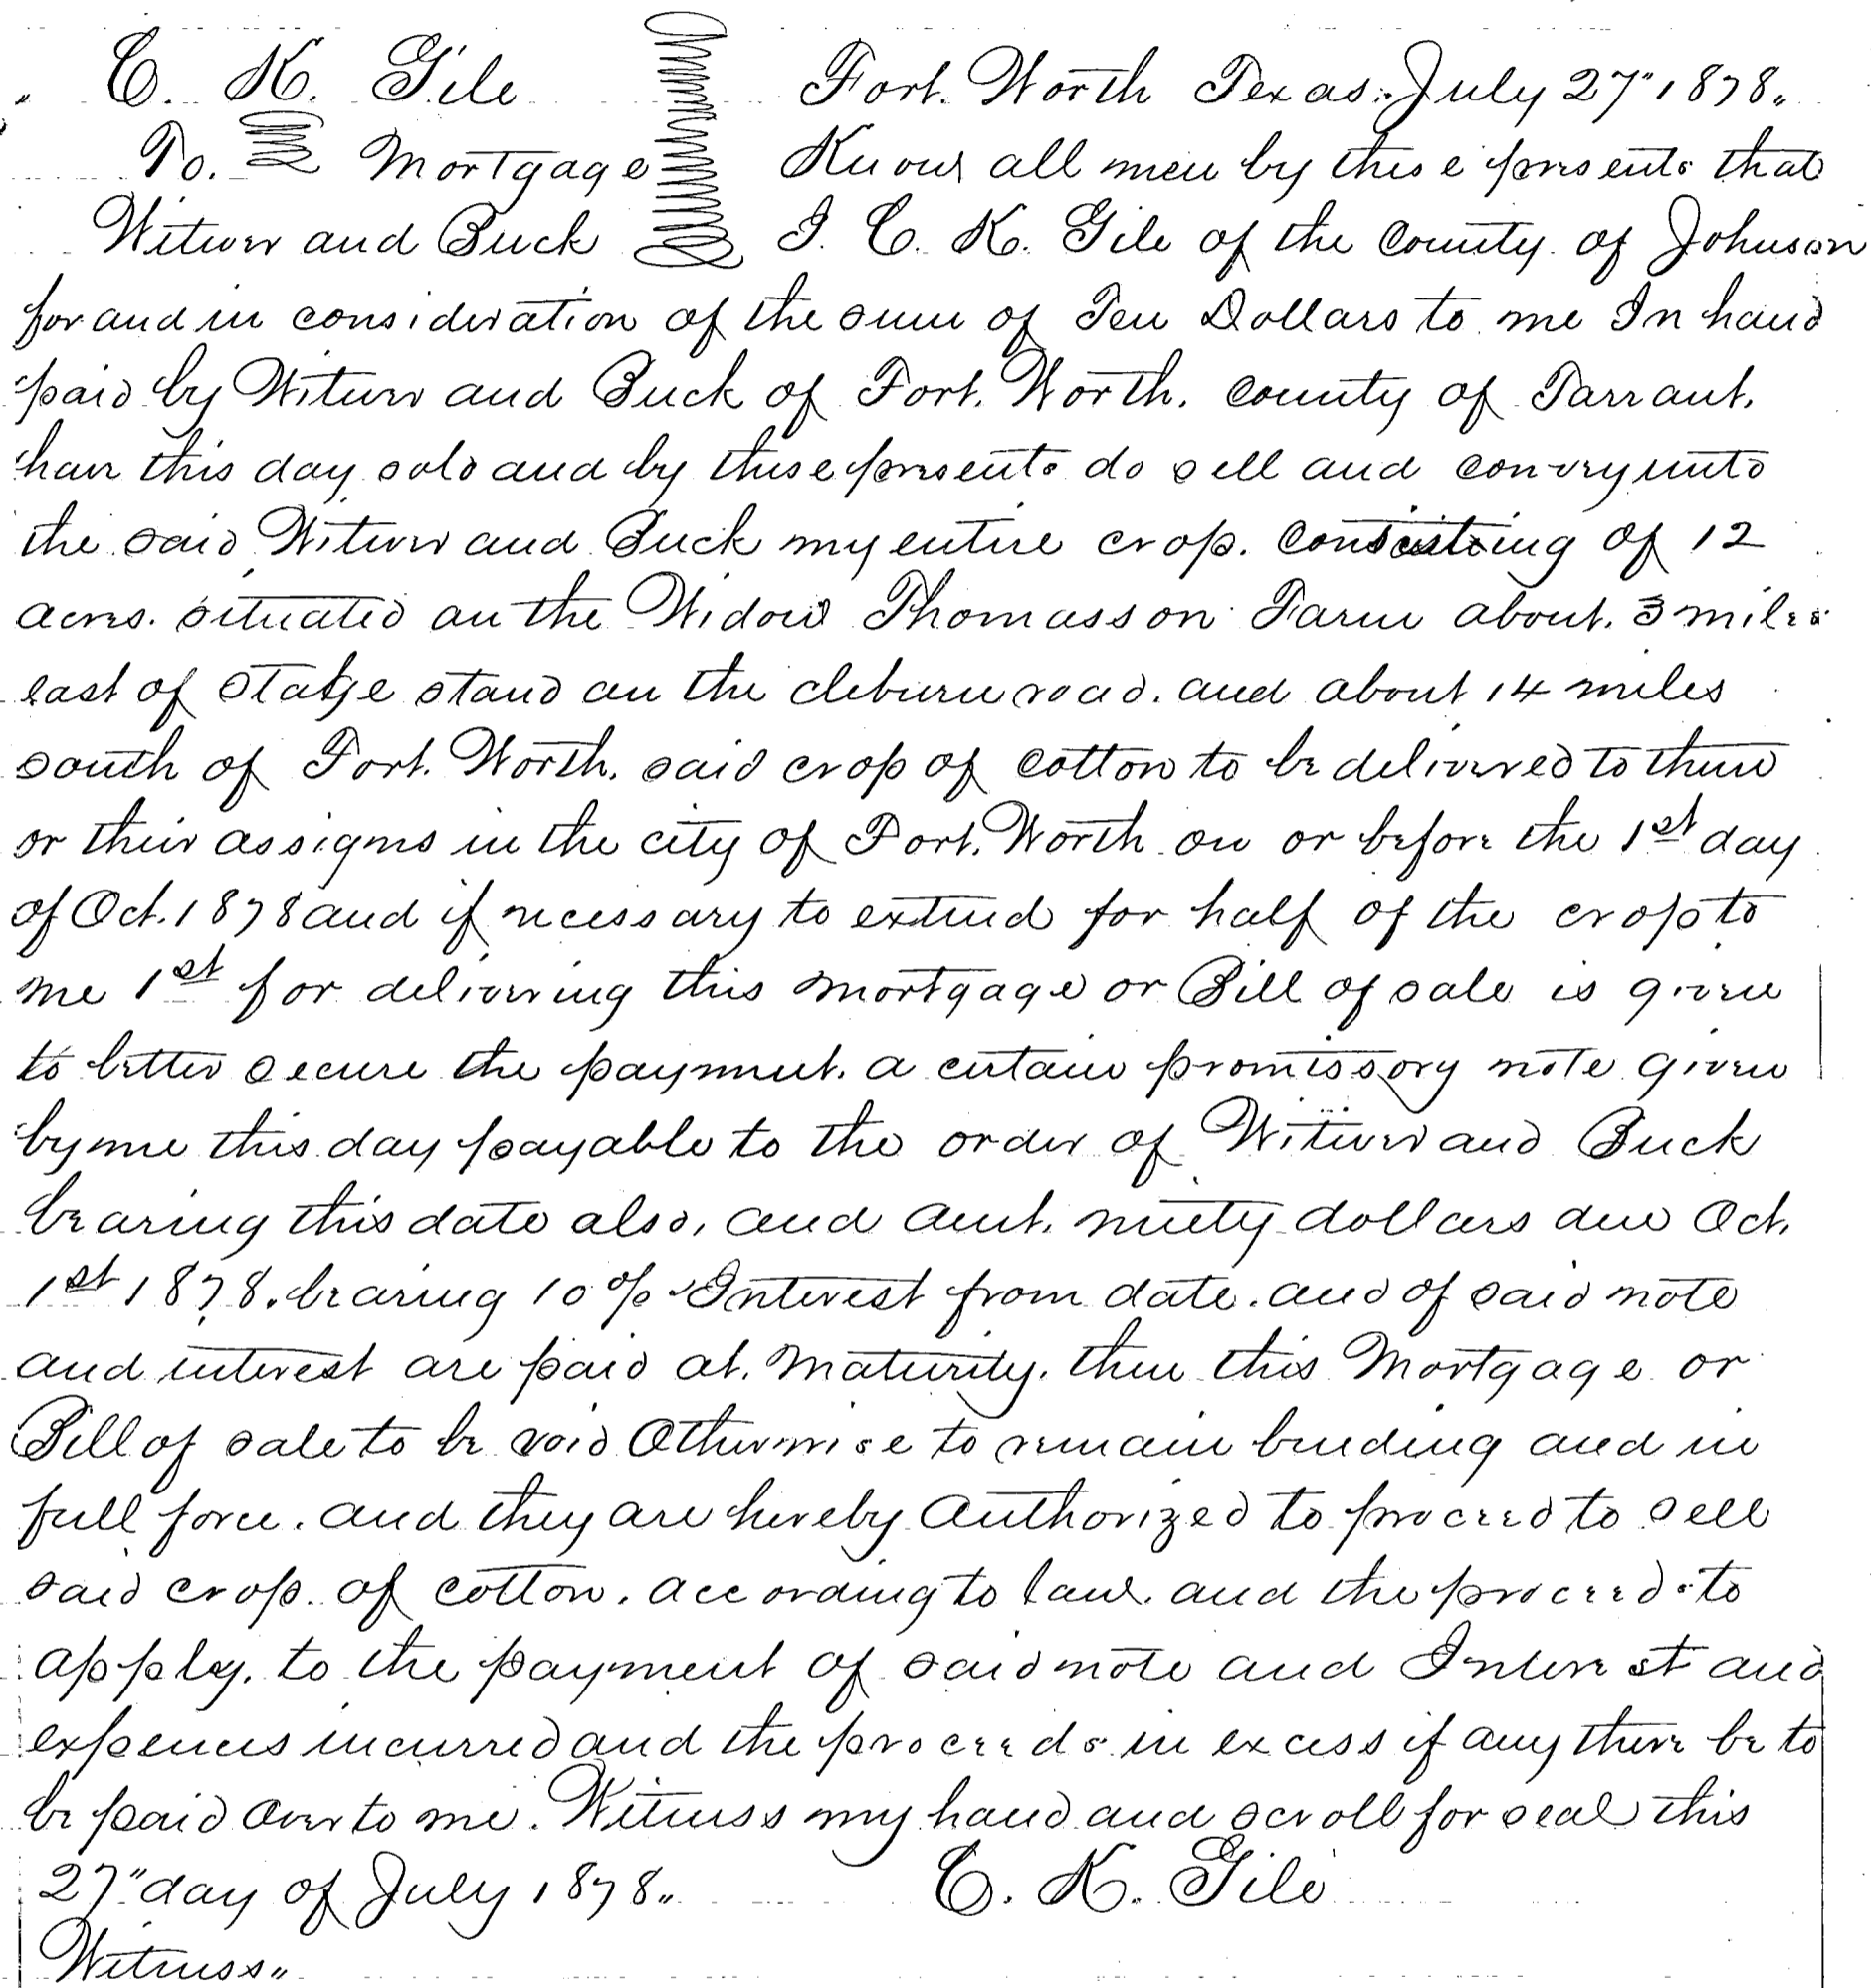 C. K. Gile Fort. Worth Texas. July 27" 1878.
To. Mortgage Know all men by these presents that
Witwer and Buck I. C. K. Gile of the County of Johnson
for and in consideration of the sum of Ten Dollars to me In hand
paid by Witwer and Buck of Fort. Worth. County of Tarrant.
have this day sold and by these presents do sell and convey unto
the said Witwer and Buck my entire crop. Consisting of 12
acres. situated on the Widow Thomasson Farm about. 3 miles
east of Stage stand on the cleburne road. and about 14 miles
south of Fort. Worth. said crop of cotton to be delivered to them
or their assigns in the city of Fort. Worth on or before the 1st day
of Oct. 1878 and if necessary to extend for half of the crop to
me 1st for delivering this mortgage or Bill of sale is given
to better secure the payment. a certain promissory note given
by me this day payable to the order of Witwer and Buck
bearing this date also, and amt. ninety dollars due Oct.
1st 1878. bearing 10 % Interest from date. and of said note
and interest are paid at. maturity. then this Mortgage or
Bill of sale to be void Otherwise to remain binding and in
full force. and they are hereby Authorized to proceed to sell
said crop. of cotton. according to law. and the proceeds to
apply. to the payment of said note and Interest and
expences incurred and the proceeds in excess if any there be to
be paid over to me. Witness my hand and scroll for seal this
27" day of July 1878. C. K. Gile
Witness"